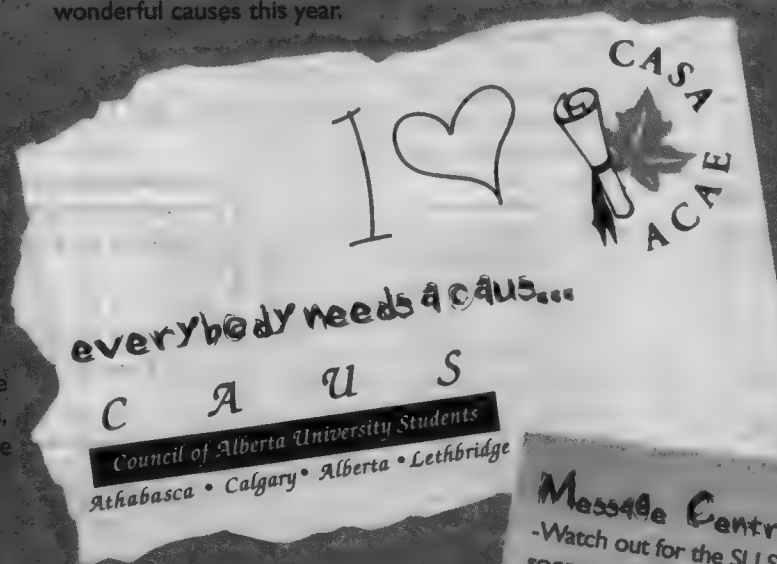 wonderful causes this year.
I
CASA
ACAE
everybody needs a caus...
C A U S
Council of Alberta University Students
Athabasca • Calgary • Alberta • Lethbridge
e
,
e
Message Centr
-Watch out for the SLLS